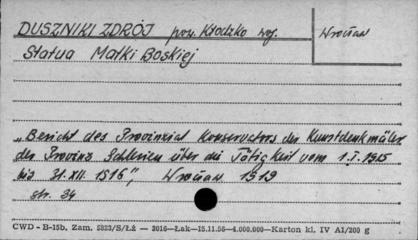 DUSZNIKI ZDRÓJ pow. Kłodzko woj. Wrocław
Statua Matki Boskiej
„Bericht des Provinzial Konservators der Kunstdenkmäler
der Provinz Schlesien über die Tätigkeit vom 1.I.1915
bis 31.XII.1916", Wrocław 1919
str. 34
CWD - B-15b, Zam. 5823/S/Łż — 2016—Łak—15.11.56—4.000.000—Karton kl. IV A1/200 g